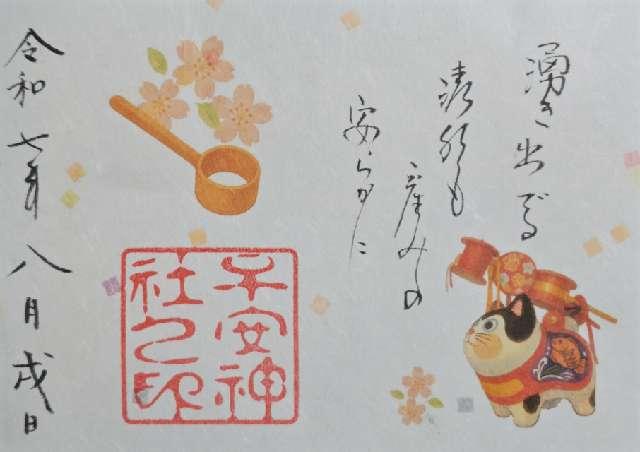 湧き出でる
清水も
産みの
安らかに
子安神
社之印
令和七年八月戌日